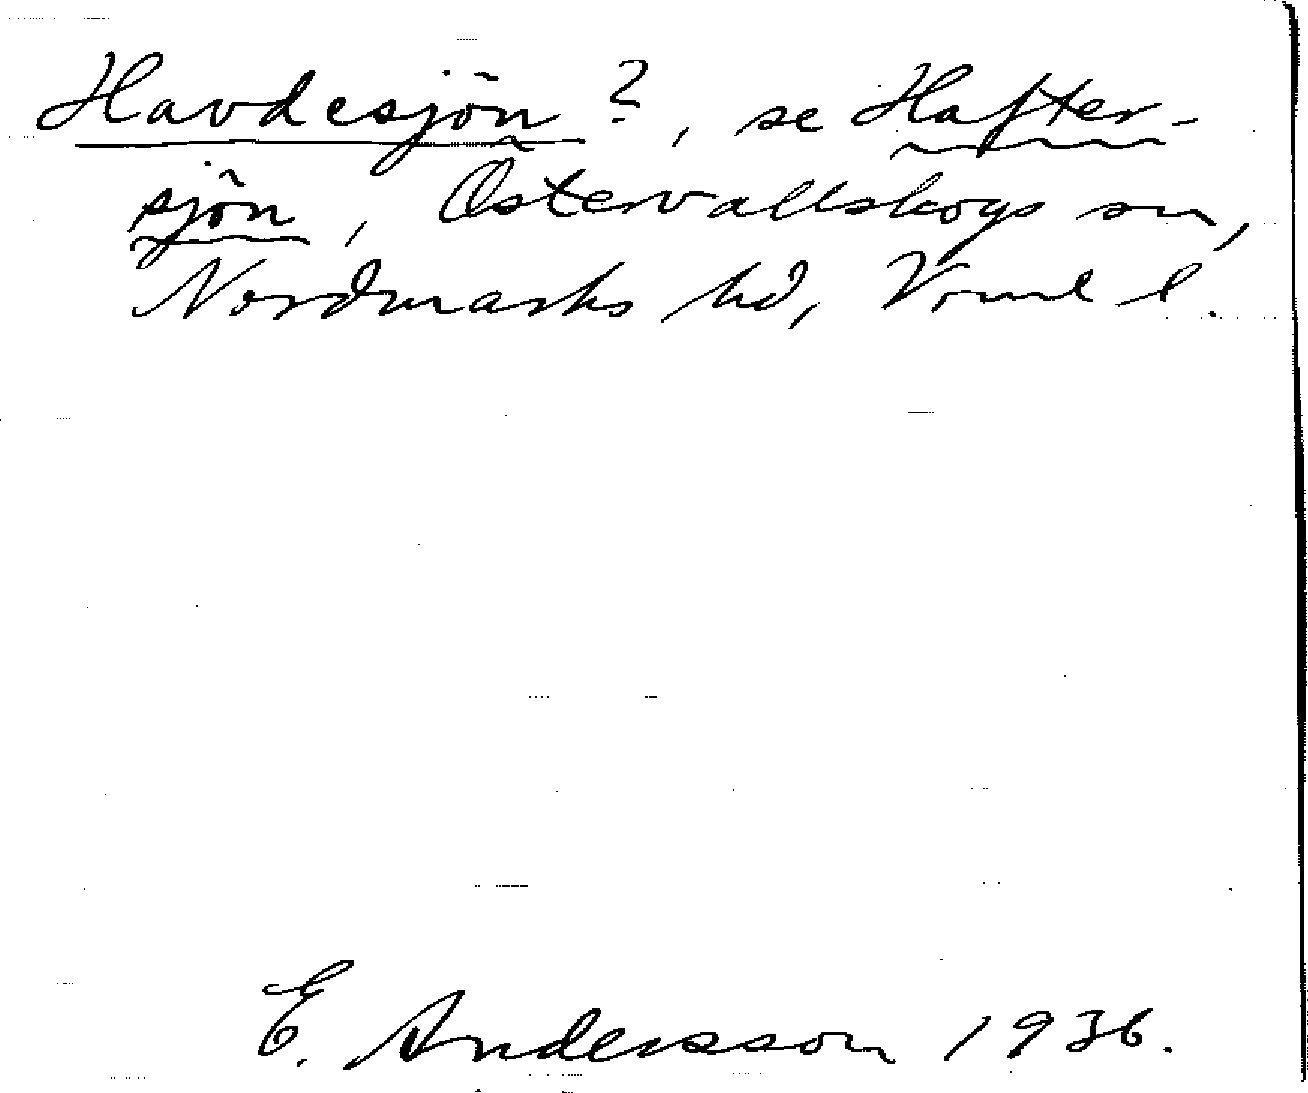 Havdesjön?, se Hafter-
sjön, Östervallskogs sn,
Nordmarks hd, Vrml l.
E. Andersson 1936.